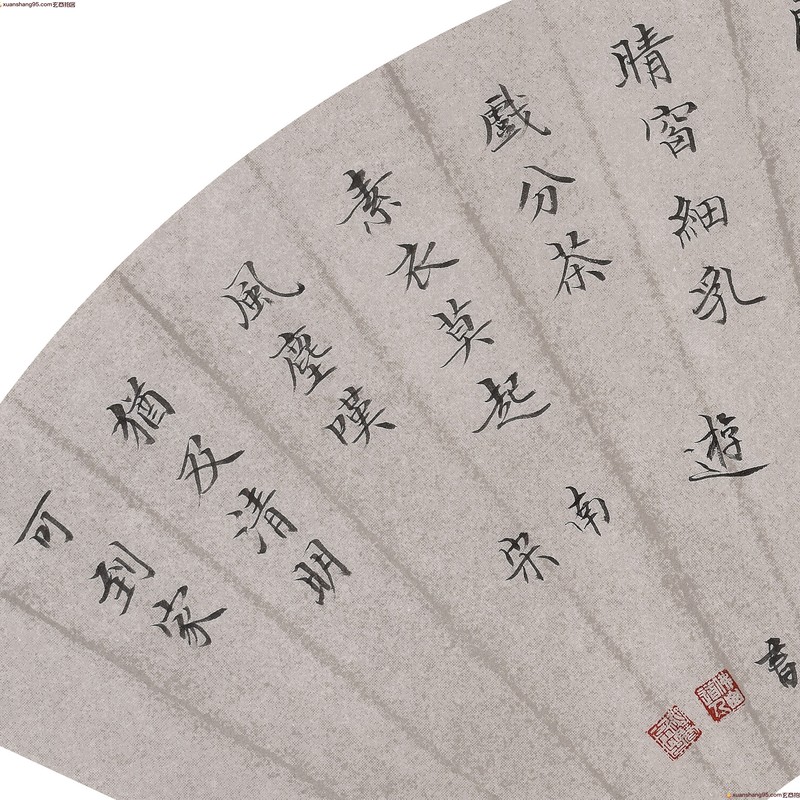 晴窗細乳
戲分茶
素衣莫起
風塵嘆
猶及清明
可到家
遊
南
宋
書
xuanshang95.com
xuanshang95.com